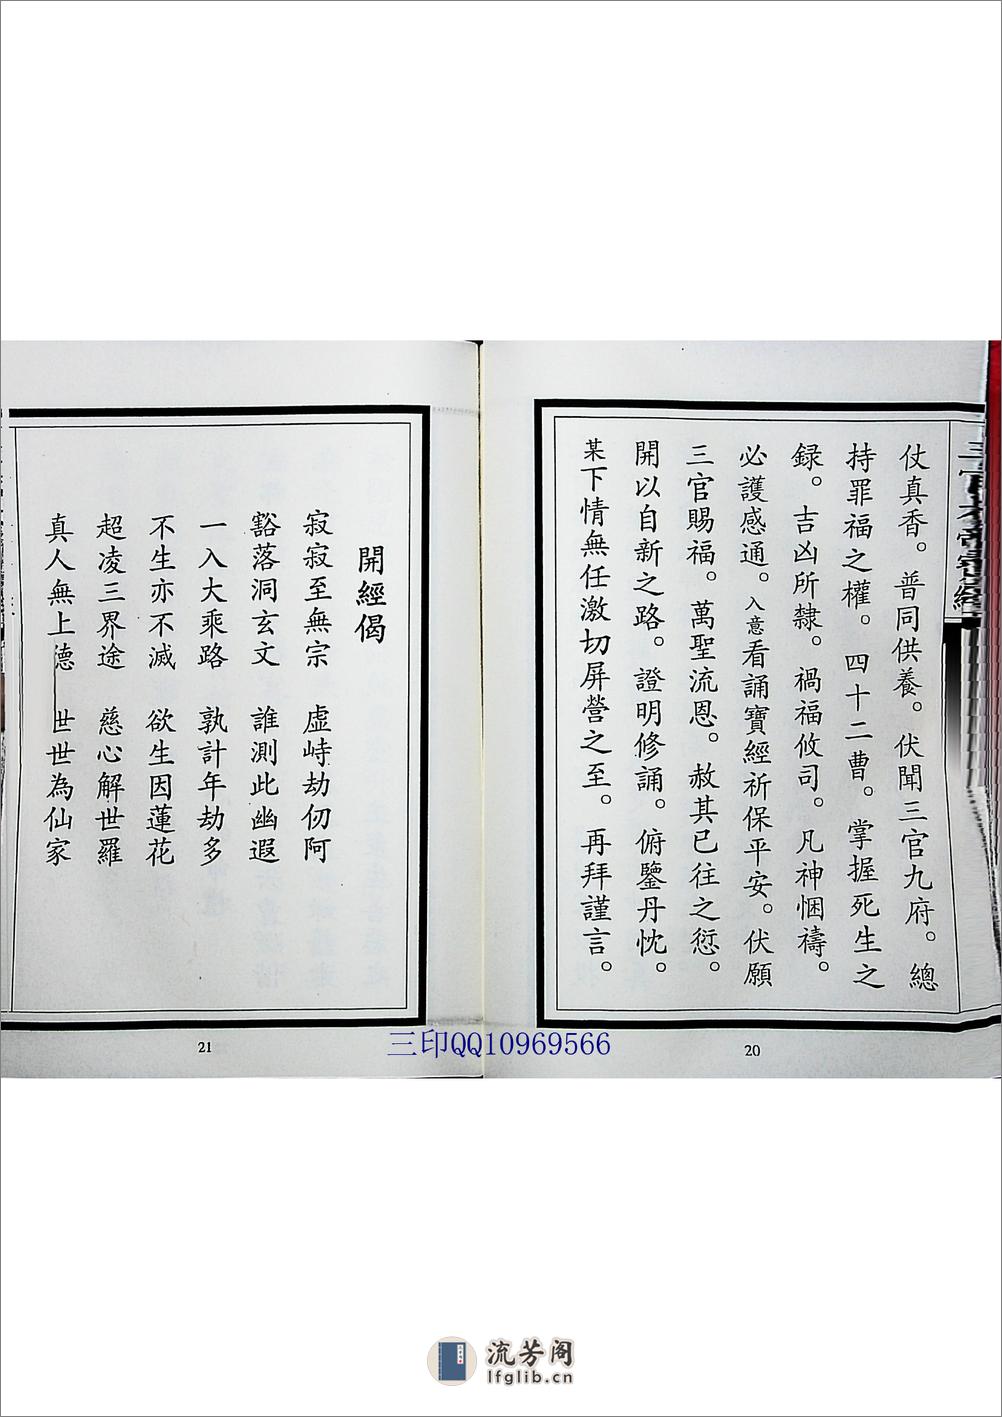 三官大帝寶經
仗真香。普同供養。伏聞三官九府。總
持罪福之權。四十二曹。掌握死生之
録。吉凶所隸。禍福攸司。凡神悃禱。
必護感通。入意看誦寶經祈保平安。伏願
三官賜福。萬聖流恩。赦其已往之愆。
開以自新之路。證明修誦。俯鑒丹忱。
某下情無任激切屏營之至。再拜謹言。
20
開經偈
寂寂至無宗 虛峙劫仞阿
豁落洞玄文 誰測此幽遐
一入大乘路 孰計年劫多
不生亦不滅 欲生因蓮花
超凌三界途 慈心解世羅
真人無上德 世世為仙家
21
三印QQ10969566
流芳阁
lfglib.cn